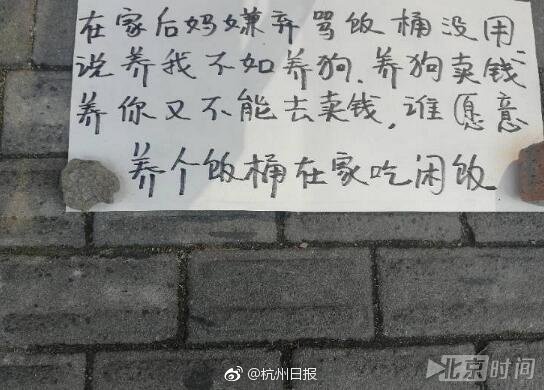 在家后妈嫌弃骂饭桶没用
说养我不如养狗.养狗卖钱
养你又不能去卖钱,谁愿意
养个饭桶在家吃闲饭
@杭州日报
北京时间